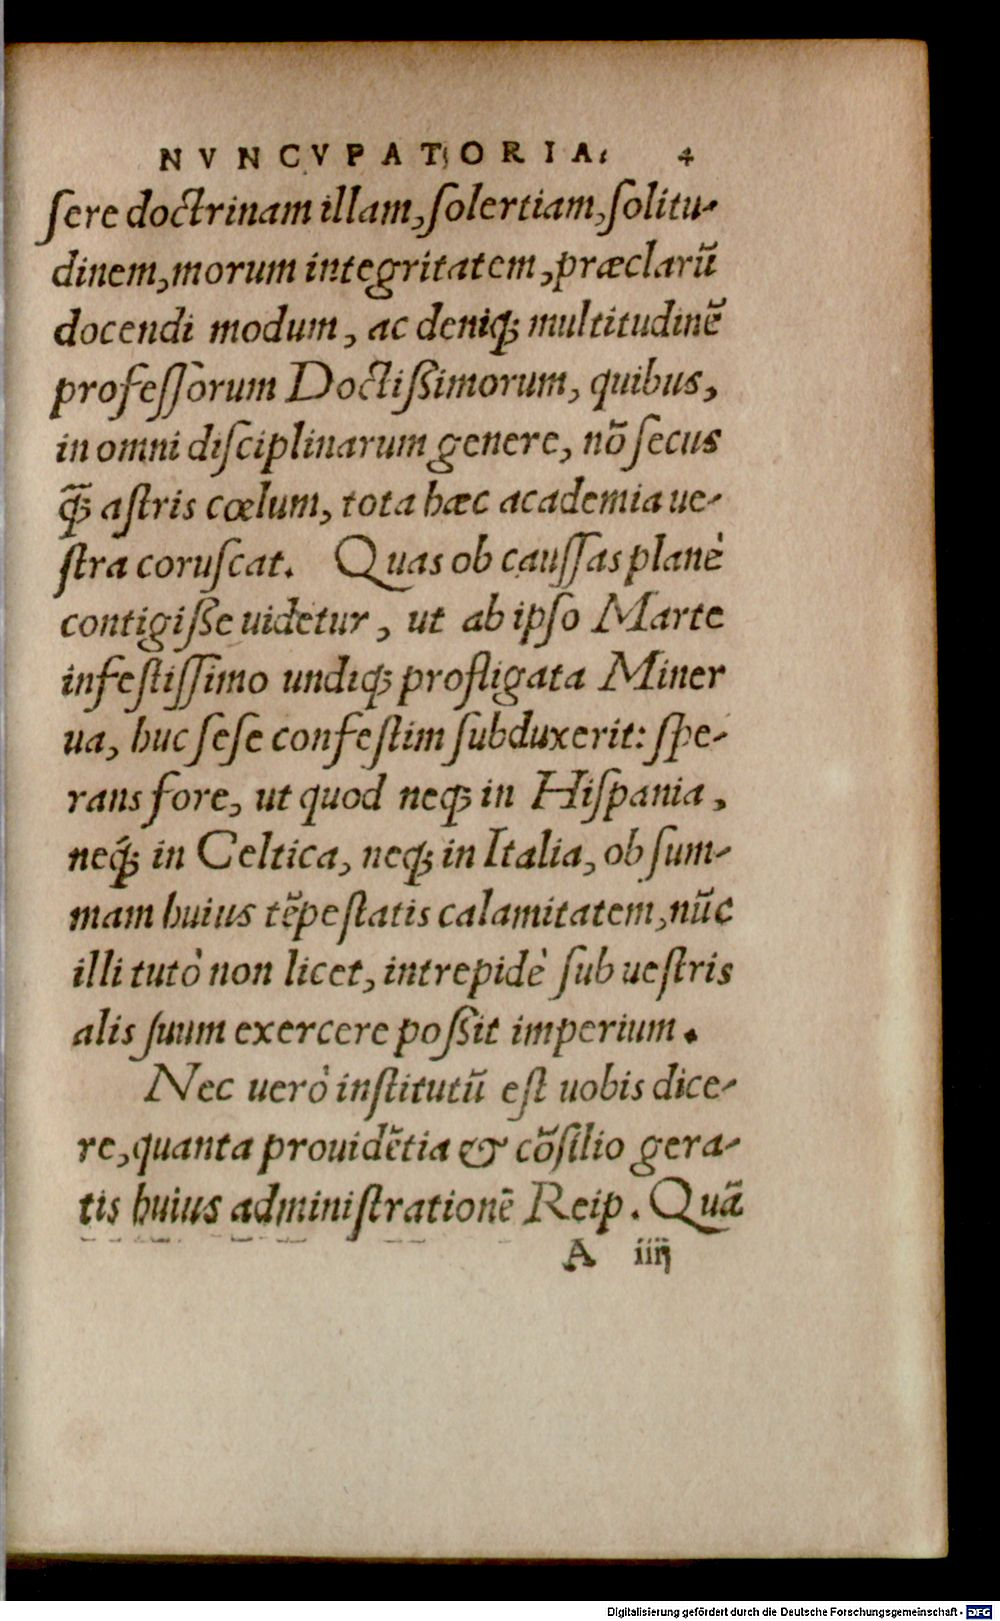 NVNCVPATORIA. 4
ſere doctrinam illam, ſolertiam, ſolitu-
dinem, morum integritatem, præclarũ
docendi modum, ac deniq; multitudinẽ
profeſſorum Doctißimorum, quibus,
in omni diſciplinarum genere, nõ ſecus
q̃; aſtris cœlum, tota hæc academia ue-
ſtra coruſcat. Quas ob cauſſas planè
contigiſſe uidetur, ut ab ipſo Marte
infeſtiſſimo undiq; profligata Miner
ua, huc ſeſe confeſtim ſubduxerit: ſpe-
rans fore, ut quod neq; in Hiſpania,
neq́; in Celtica, neq; in Italia, ob ſum-
mam huius tẽpeſtatis calamitatem, nũc
illi tutò non licet, intrepidè ſub ueſtris
alis ſuum exercere poßit imperium.
Nec uerò inſtitutũ eſt uobis dice-
re, quanta prouidẽtia & cõſilio gera-
tis huius adminiſtrationẽ Reip. Quã
A iiij
Digitalisierung gefördert durch die Deutsche Forschungsgemeinschaft - DFG